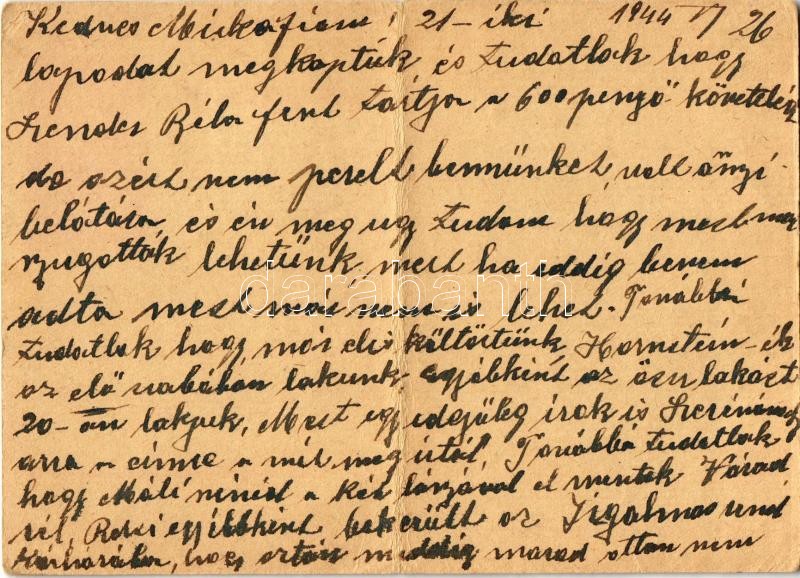 Kedves Miska fiam! 21-iki 1944 IV 26
lapodat megkaptuk és tudatlak hogy
Szendes Béla fent tartja a 600 pengő követelés
de azért nem perelt bennünket volt annyi
belátása, és én meg ugy tudom hogy most már
nyugottak lehetünk mert ha eddig be nem
adta most már nem is lehet. További
tudatlak hogy már elis költöztünk Hornstein-ék
az elő szobában lakunk, egyébként az ősu lakást
20-án lakjuk, Most egyidejűleg írok is
arra a címre a mit meg írtál. Továbbá tudatlak
hogy Máli nénéd a két lányával el mentek Várad
ról, Rezsi egyébként bekerült az Irgalmas rend
kórházába, hogy aztán meddig marad ottan nem
darabanth